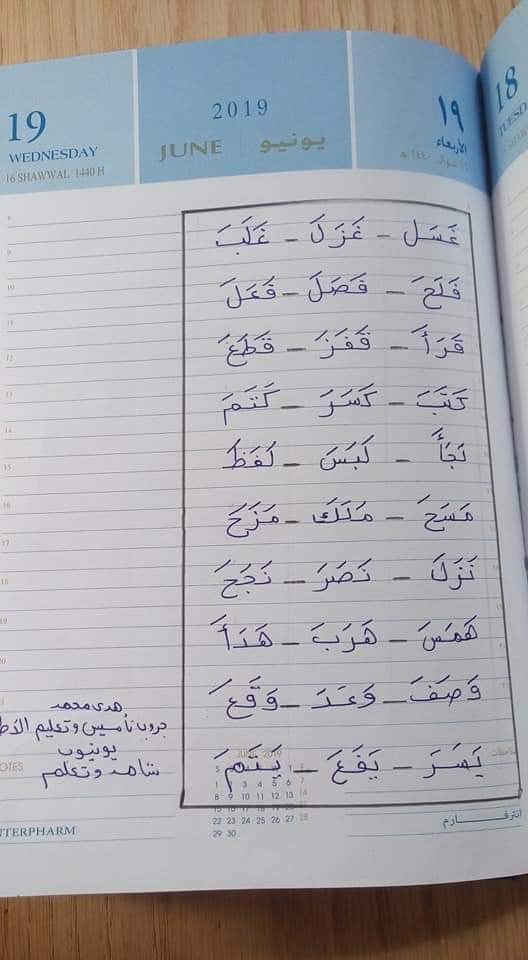 19
WEDNESDAY
16 SHAWWAL 1440 H
2019
JUNE يونيو
١٩
الأربعاء
18
غَسَل - غَزَلَ - غَلَبَ
فَلَحَ - فَصَلَ - فَعَلَ
قَرَأَ - قَفَزَ - قَطَعَ
كَتَبَ - كَسَرَ - كَتَمَ
لَجَأَ - لَبَسَ - لَفَظَ
مَسَحَ - مَلَكَ - مَزَحَ
نَزَلَ - نَصَرَ - نَجَحَ
هَمَسَ - هَرَبَ - هَدَأَ
وَصَفَ - وَعَدَ - وَقَعَ
يَسَرَ - يَفَعَ - يَتَمَ
هدى محمد
جروب تأسيس وتعليم
يوتيوب
شاهد وتعلم
NOTES
JUNE 2019
8 9 10 11 12 13 14
22 23 24 25 26 27 28
29 30
INTERPHARM
انترفارم